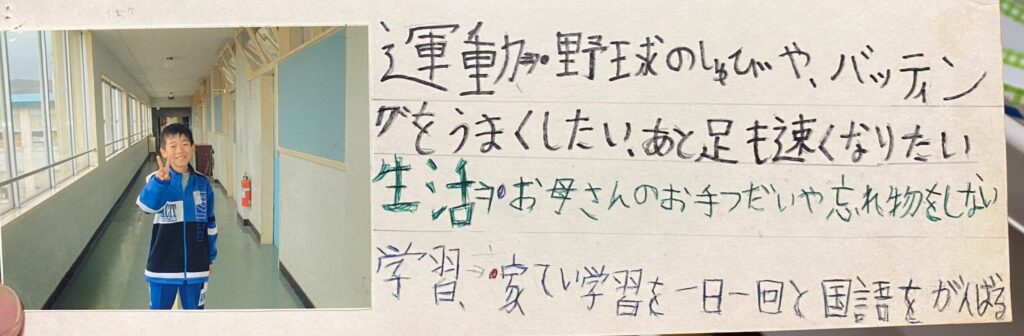 運動→・野球のしゅびや、バッティン
グをうまくしたい、あと足も速くなりたい
生活→・お母さんのお手つだいや忘れ物をしない
学習→・家てい学習を一日一回と国語をがんばる